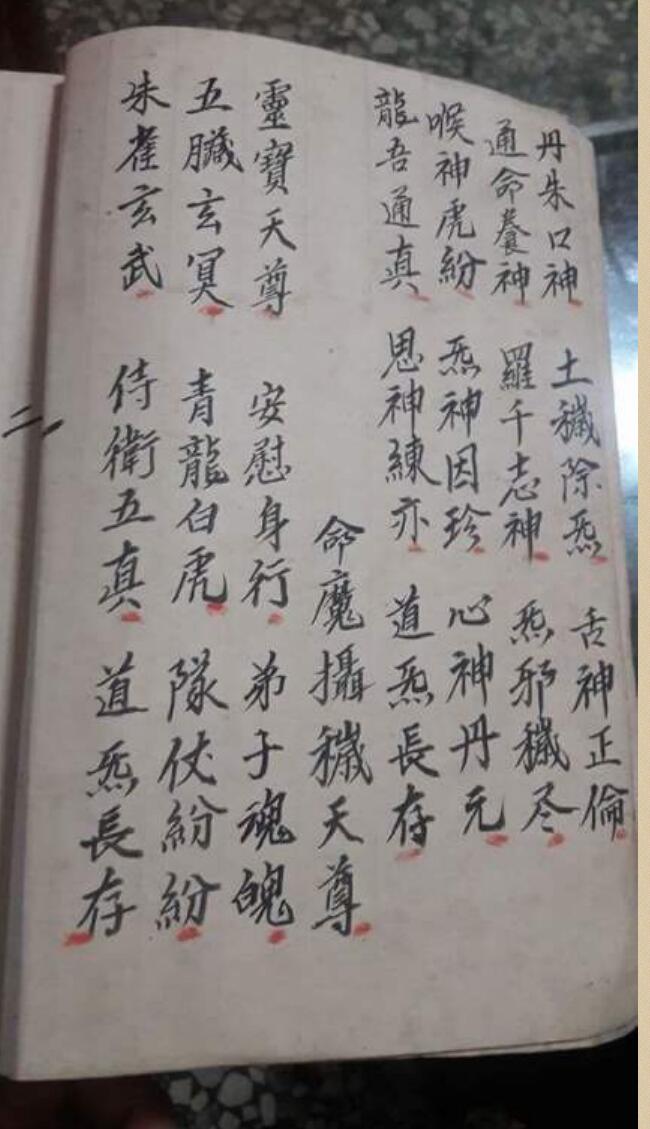 丹朱口神 土穢除炁 舌神正倫
通命養神 羅千志神 炁邪穢尽
喉神虎紛 炁神因珍 心神丹元
龍吾通真 思神練亦 道炁長存
命魔攝穢天尊
靈寶天尊 安慰身行 弟子魂魄
五臟玄冥 青龍白虎 隊仗紛紛
朱雀玄武 侍衛五真 道炁長存
二